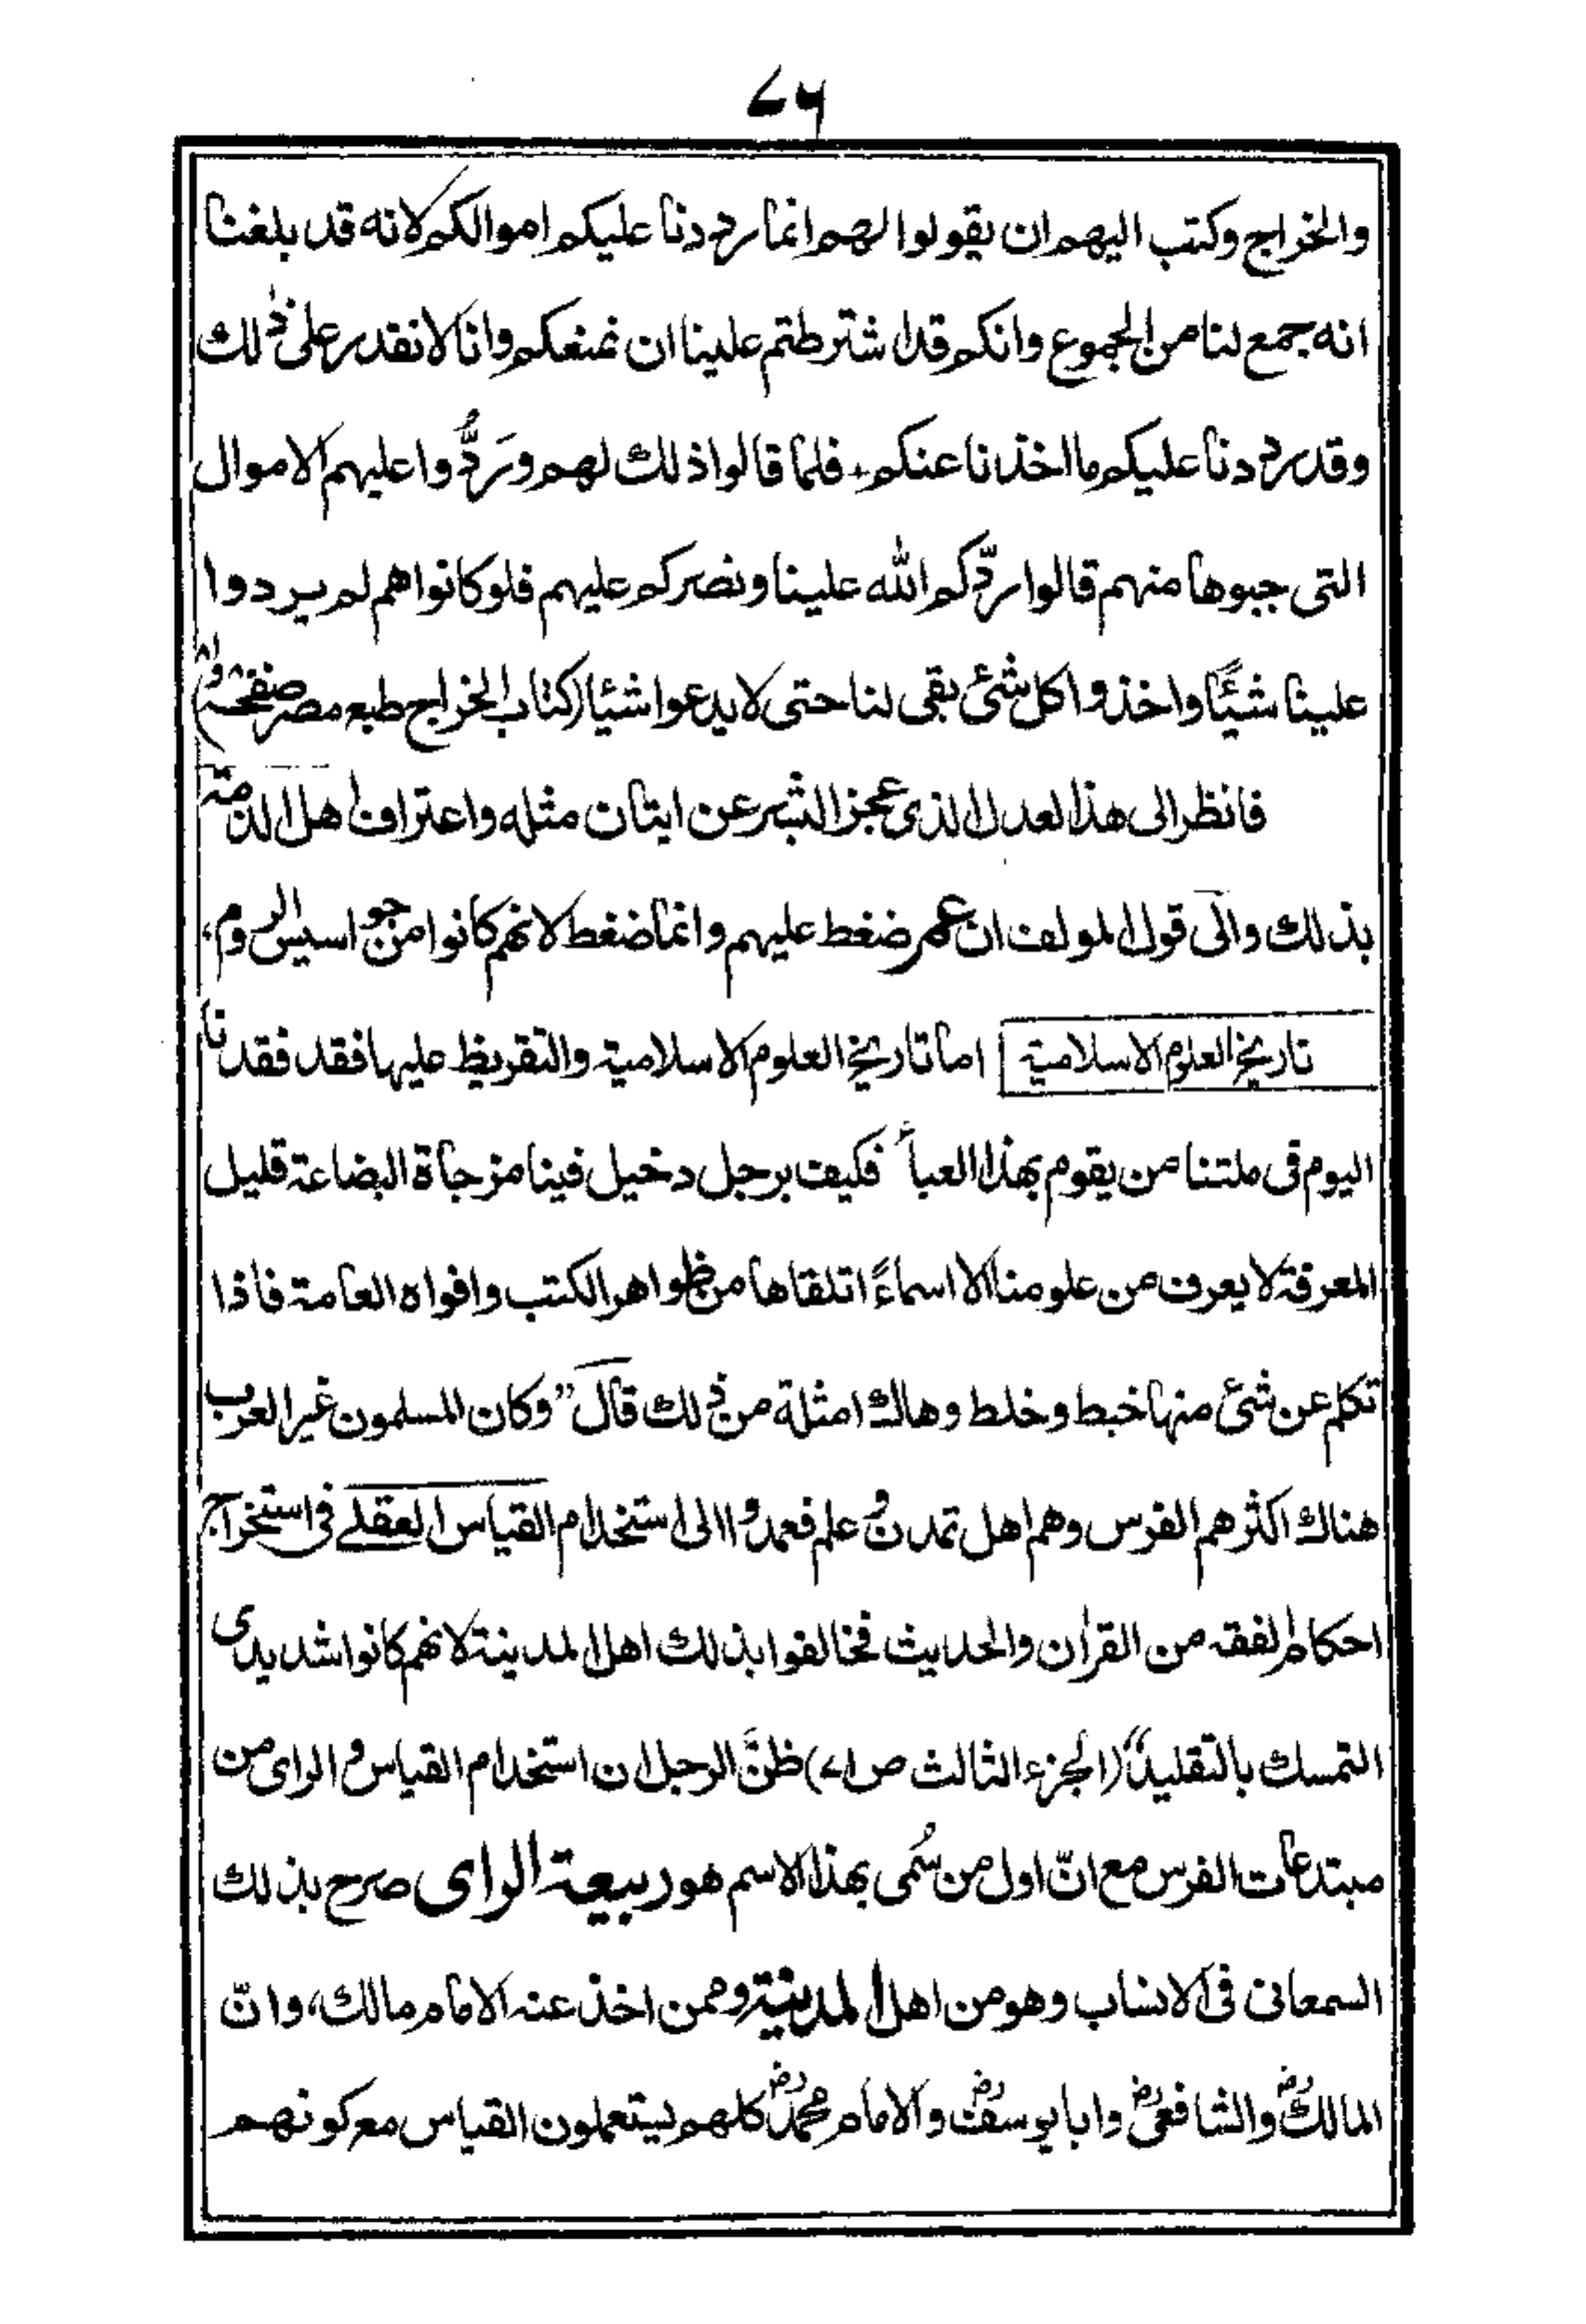 ۷۶
والخراج وكتب اليهم ان يقولوا لهم انما رددنا عليكم اموالكم لانه قد بلغنا
انه جمع لنا من الجموع وانكم قد اشترطتم علينا ان نمنعكم وانا لا نقدر على ذٰلك
وقد رددنا عليكم ما اخذنا عنكم، فلما قالوا ذلك لهم ورَدُّوا عليهم الاموال
التى جبوها منهم قالوا ردّكم الله علينا ونصركم عليهم فلو كانوا هم لم يردوا
علينا شيئًا واخذوا كل شئ بقى لنا حتى لا يدعوا شيئا (كتاب الخراج طبع مصر صفحة
فانظر الى هذا لعدل الذى عجز البشر عن ايتان مثله واعتراف اهل الذمة
بذلك والى قول المولف ان عمر ضغط عليهم وانما ضغط لانهم كانوا من جواسيس الروم،
تاريخ العلوم الاسلامية اما تاريخ العلوم الاسلامية والتقريظ عليها فقد فقدنا
اليوم فى ملتنا من يقوم بهذا العبأ فكيف برجل دخيل فينا مزجاة البضاعة قليل
المعرفة لا يعرف من علومنا الا اسماءً اتلقاها من ظواهر الكتب وافواه العامة فاذا
تكلم عن شئ منها خبط وخلط وهاك امثلة من ذٰلك قال "وكان المسلمون غير العرب
هناك اكثرهم الفرس وهم اهل تمدن وعلم فعمدوا الى استخدام القياس العقلے فى استخراج
احكام الفقه من القراٰن والحديث فخالفوا بذلك اهل المدينة لانهم كانوا شديدى
التمسك بالتقليد" (الجزء الثالث ص ۷۱) ظنَّ الرجل ان استخدام القياس والراى من
مبتدعات الفرس مع انّ اول من سُمى بهذا الاسم هو ربيعة الراى صرح بذلك
السمعانى فى الانساب وهو من اهل المدينة وممن اخذ عنه الامام مالك، وانّ
المالكؓ والشافعىؓ وابا يوسفؓ والامام محمدؓ كلهم يستعملون القياس مع كونهم